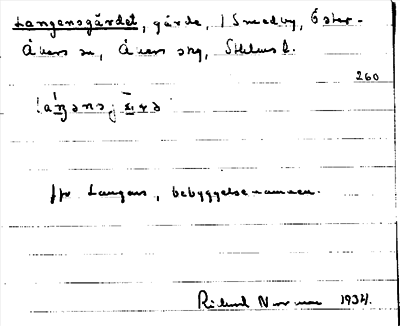 Langensgärdet, gärde, i Smedby, Öster-
Åkers sn, Åkers skg, Sthlms l.
260
jfr Langens, bebyggelsenamnen.
Rikard Norrman 1934.